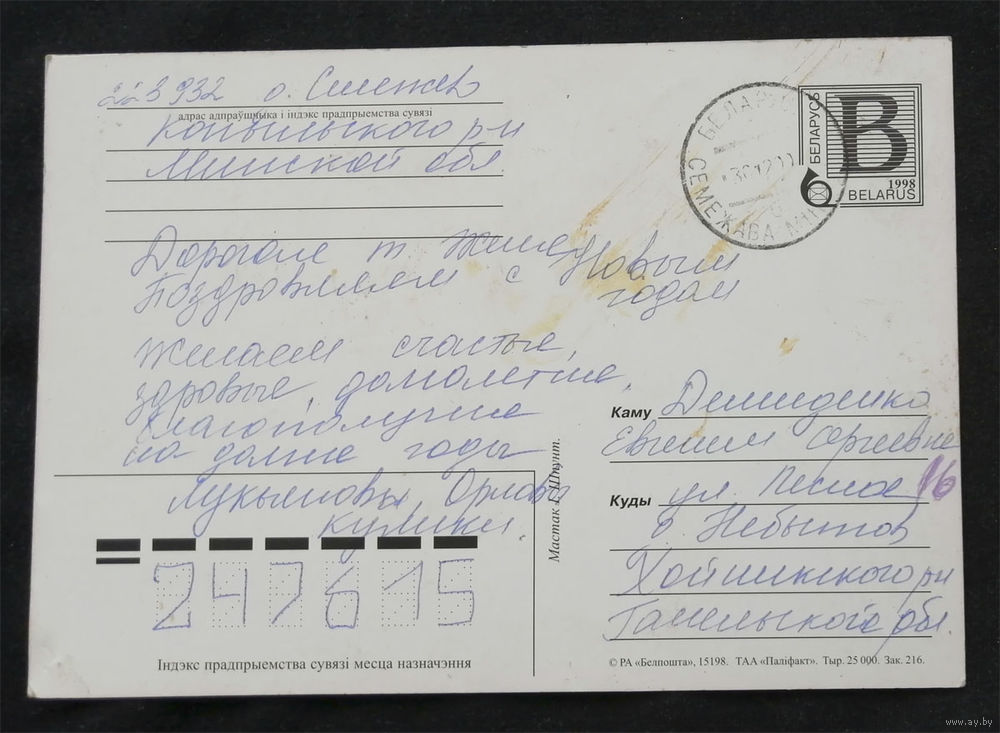 223932 о. Семежев
адрас адпраўшчыка і індэкс прадпрыемства сувязі
Копыльского р-н
Минской обл.
БЕЛАРУСЬ
СЕМЕЖАВА
БЕЛАРУСЬ
B
1998
BELARUS
Дорогая т Женя
Поздравляем с Новым
годом
Желаем счастье,
здоровье, долголетие,
благополучие
на долгие годы
Лукьяновы, Орлова
кулики.
Каму Демиденко
Евгении Сргеевне
Куды ул. Лесная 16
Небытов
Хойникского р-н
Гомельского обл.
247615
Індэкс прадпрыемства сувязі месца назначэння
Мастак Г. Шпунт.
© РА «Белпошта», 15198. ТАА «Паліфакт». Тыр. 25 000. Зак. 216.
www.ay.by